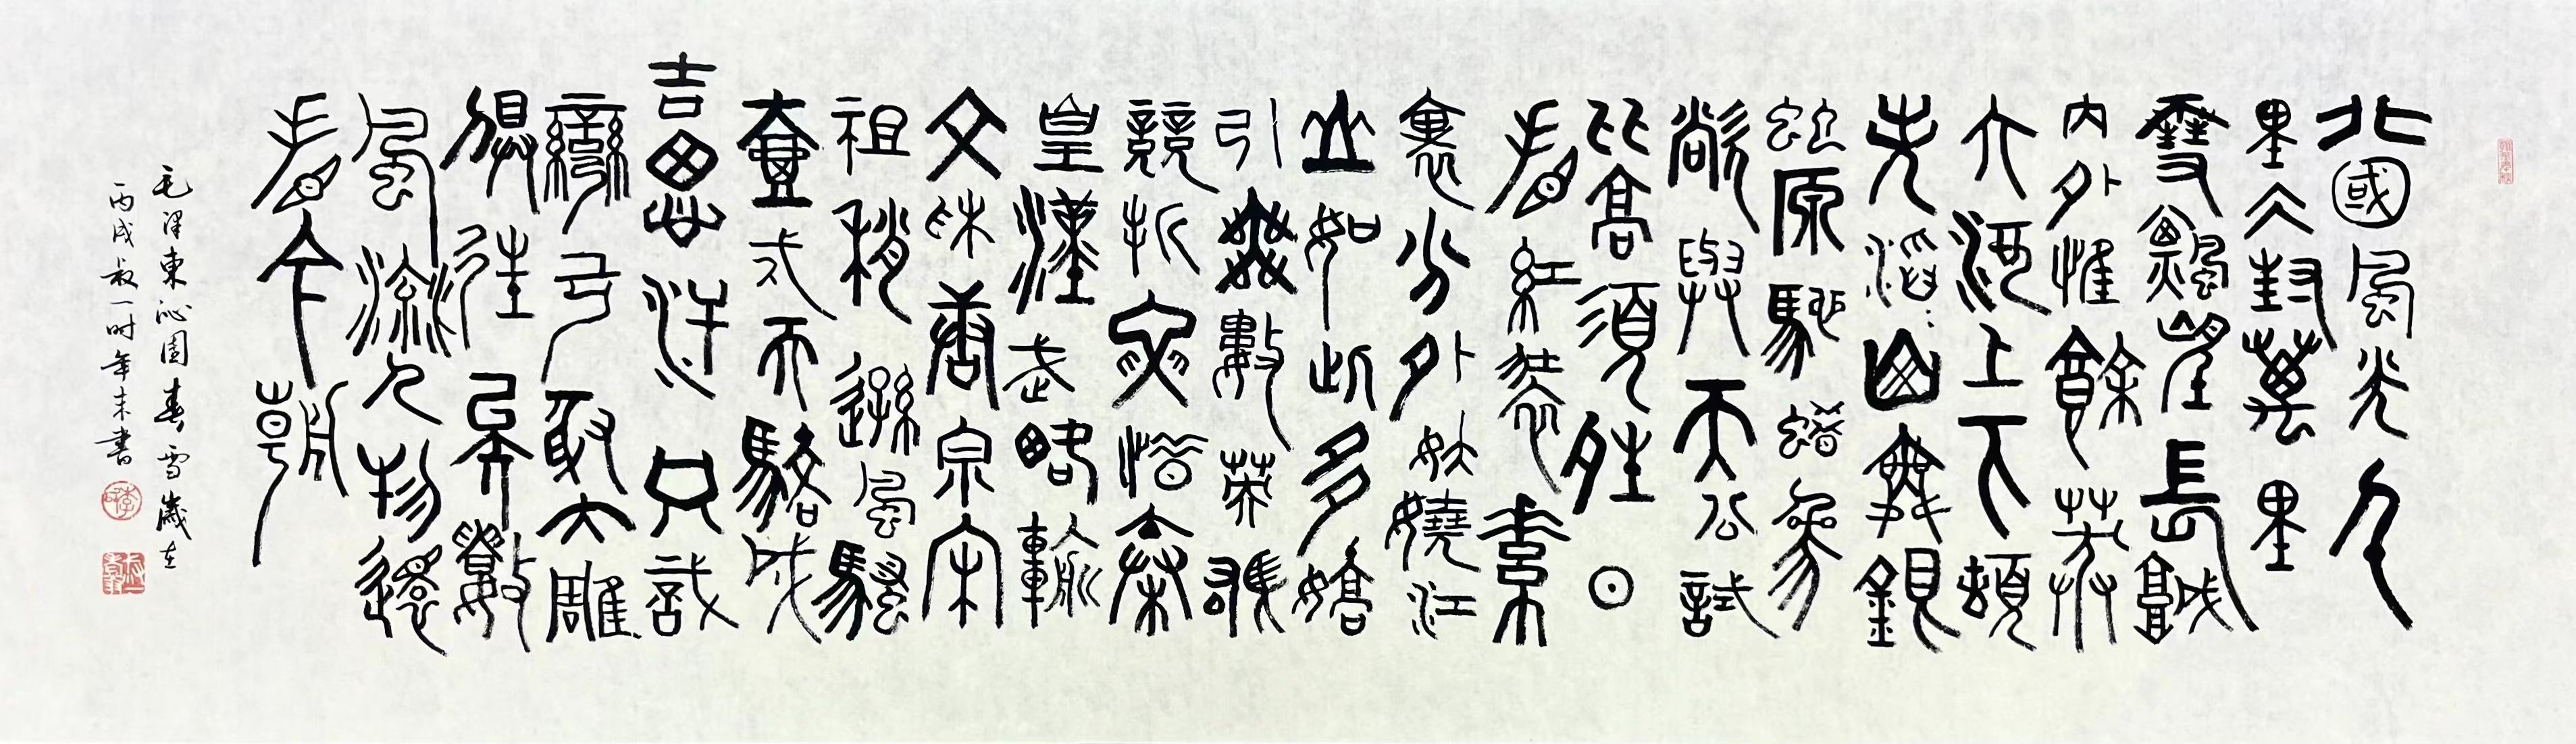 北國風光千
里冰封萬里
雪飄望長城
內外惟餘莽
大河上下頓
失滔滔山舞銀
蛇原馳蠟象
欲與天公試
比高須晴日
看紅裝素
裹分外妖嬈江
山如此多嬌
引無數英雄
競折腰惜秦
皇漢武略輸
文采唐宗宋
祖稍遜風騷
一代天驕成
吉思汗只識
彎弓射大雕
俱往矣數
風流人物還
看今朝
毛澤東沁園春雪歲在
丙戌年末書